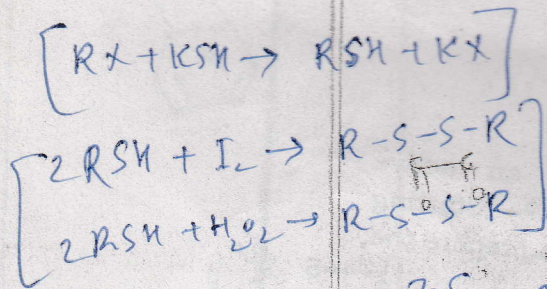 [RX + KSH → RSH + KX]
[2RSH + I₂ → R-S-S-R
2RSH + H₂O₂ → R-S-S-R]